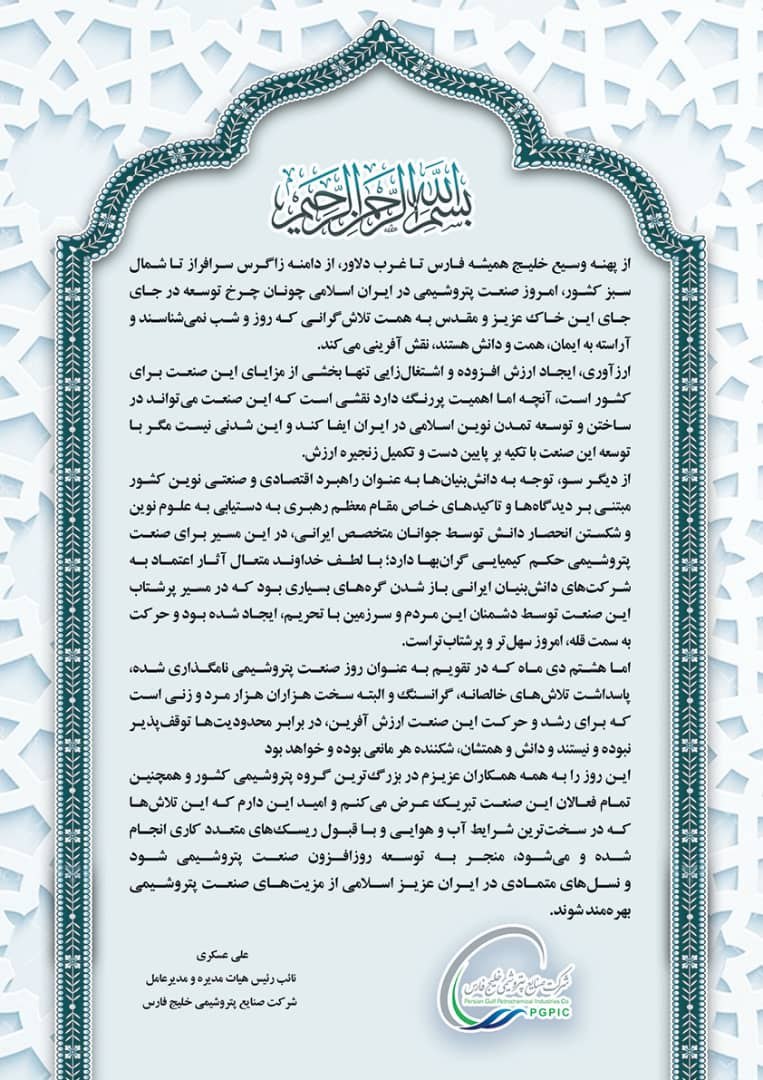 بسم الله الرحمن الرحیم
از پهنه وسیع خلیج همیشه فارس تا غرب دلاور، از دامنه زاگرس سرافراز تا شمال
سبز کشور، امروز صنعت پتروشیمی در ایران اسلامی چونان چرخ توسعه در جای
جای این خاک عزیز و مقدس به همت تلاش‌گرانی که روز و شب نمی‌شناسند و
آراسته به ایمان، همت و دانش هستند، نقش آفرینی می‌کند.
ارزآوری، ایجاد ارزش افزوده و اشتغال‌زایی تنها بخشی از مزایای این صنعت برای
کشور است، آنچه اما اهمیت پررنگ دارد نقشی است که این صنعت می‌تواند در
ساختن و توسعه تمدن نوین اسلامی در ایران ایفا کند و این شدنی نیست مگر با
توسعه این صنعت با تکیه بر پایین دست و تکمیل زنجیره ارزش.
از دیگر سو، توجه به دانش‌بنیان‌ها به عنوان راهبرد اقتصادی و صنعتی نوین کشور
مبتنی بر دیدگاه‌ها و تاکیدهای خاص مقام معظم رهبری به دستیابی به علوم نوین
و شکستن انحصار دانش توسط جوانان متخصص ایرانی، در این مسیر برای صنعت
پتروشیمی حکم کیمیایی گران‌بها دارد؛ با لطف خداوند متعال آثار اعتماد به
شرکت‌های دانش‌بنیان ایرانی باز شدن گره‌های بسیاری بود که در مسیر پرشتاب
این صنعت توسط دشمنان این مردم و سرزمین با تحریم، ایجاد شده بود و حرکت
به سمت قله، امروز سهل‌تر و پرشتاب‌تراست.
اما هشتم دی ماه که در تقویم به عنوان روز صنعت پتروشیمی نامگذاری شده،
پاسداشت تلاش‌های خالصانه، گرانسنگ و البته سخت هزاران هزار مرد و زنی است
که برای رشد و حرکت این صنعت ارزش آفرین، در برابر محدودیت‌ها توقف‌پذیر
نبوده و نیستند و دانش و همتشان، شکننده هر مانعی بوده و خواهد بود
این روز را به همه همکاران عزیزم در بزرگ‌ترین گروه پتروشیمی کشور و همچنین
تمام فعالان این صنعت تبریک عرض می‌کنم و امید این دارم که این تلاش‌ها
که در سخت‌ترین شرایط آب و هوایی و با قبول ریسک‌های متعدد کاری انجام
شده و می‌شود، منجر به توسعه روزافزون صنعت پتروشیمی شود
و نسل‌های متمادی در ایران عزیز اسلامی از مزیت‌های صنعت پتروشیمی
بهره‌مند شوند.
علی عسکری
نائب رئیس هیات مدیره و مدیرعامل
شرکت صنایع پتروشیمی خلیج فارس
شرکت صنایع پتروشیمی خلیج فارس
Persian Gulf Petrochemical Industries Co.
PGPIC